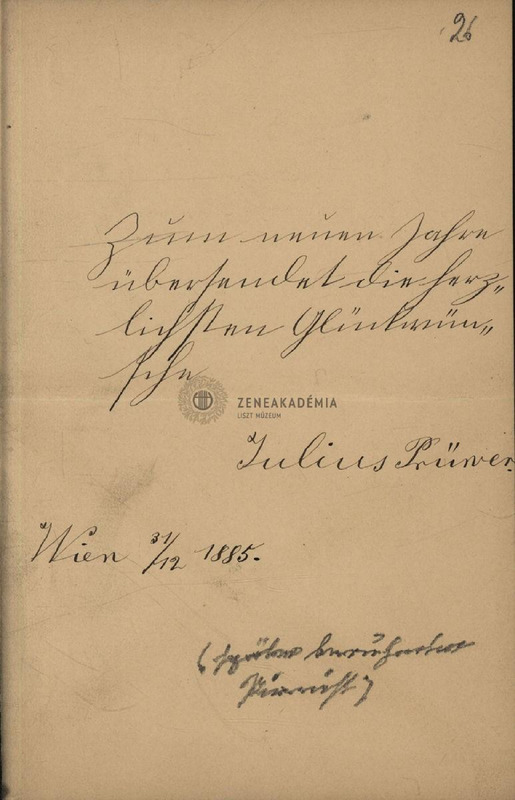 26
Zum neuen Jahre
übersendet die herz„
lichsten Glückwün„
sche
ZENEAKADÉMIA
LISZT MÚZEUM
Julius Prüwer.
Wien 31/12 1885.
(später berühmter
Pianist)